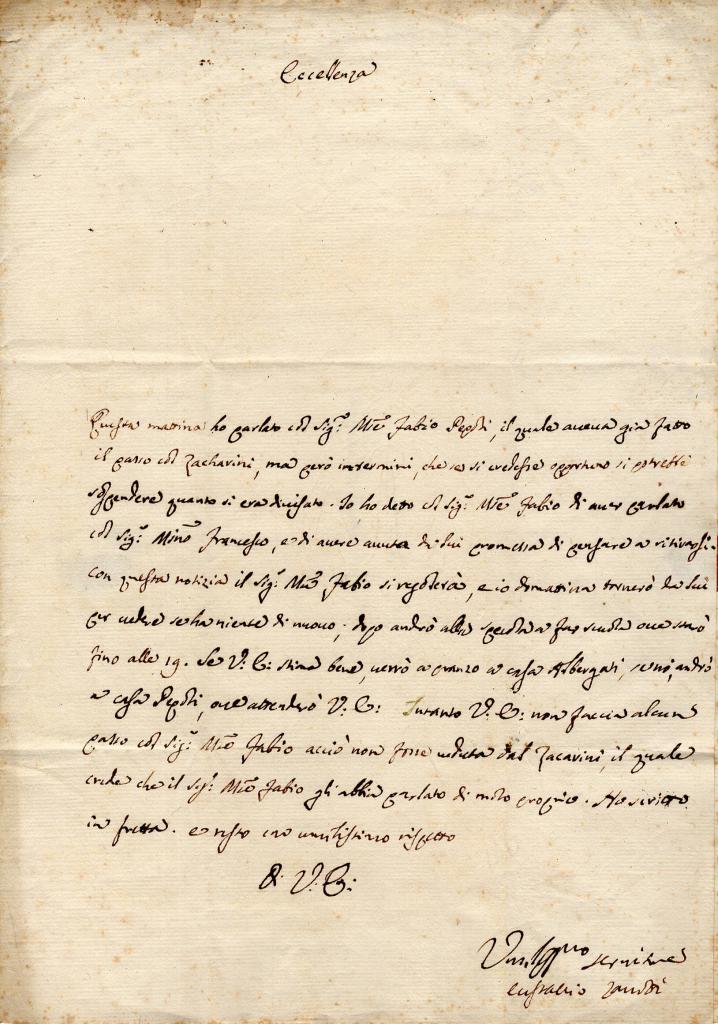 Eccellenza
Questa mattina ho parlato col Sig.r M.se Fabio Pepoli, il quale aueua già fatto
il passo col Zacharini, ma però in termini, che se si credesse oportuno si potrebbe
sospendere quanto si era diuisato. Io ho detto al Sig.r M.se Fabio di auer parlato
col Sig.r Francesco, e di auere auuta da lui promessa di pensare a ritirarsi.
con questa notizia il Sig.r M.se Fabio si regolerà, e io domattina tornerò da lui
per uedere se ha niente di nuouo; dopo andrò alla specola a far scuola oue starò
fino alle 19. Se V. E: stima bene, uerrò a pranzo a casa Albergati, se nò, andrò
a casa Pepoli, oue attenderò V. E: Intanto V. E: non faccia alcun
passo col Sig.r M.se Fabio acciò non fosse ueduta dal Zacarini, il quale
crede che il Sig.r M.se Fabio gli abbia parlato di moto proprio. Ho scritto
in fretta. e resto con umilissimo rispetto
D. V. E:
seruitore
Eustachio Zanotti